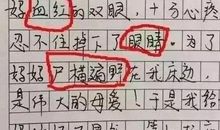 血红的双眼，十分心疼
忍不住掉下了眼睛。为了
好好尸横遍野在我床边
是伟大的母爱！于是我给